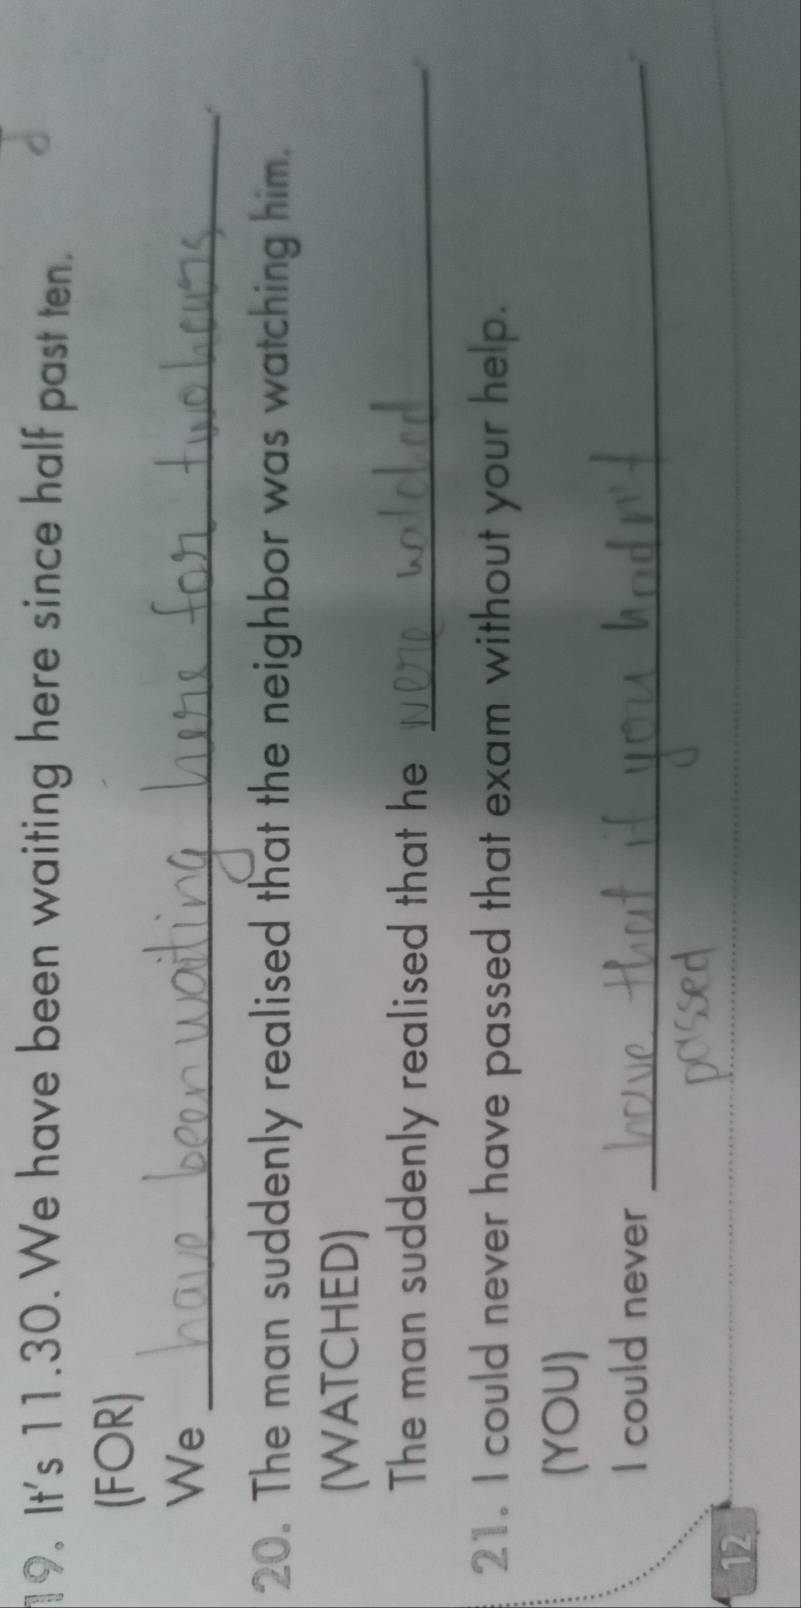 19. It's 11.30. We have been waiting here since half past ten.
(FOR)
We have been waiting here for two hours.
20. The man suddenly realised that the neighbor was watching him.
(WATCHED)
The man suddenly realised that he were watched.
21. I could never have passed that exam without your help.
(YOU)
I could never have that if you hadn't.
passed
12